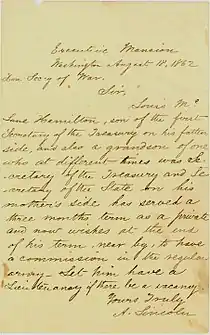 Executive Mansion
Washington August 18, 1862
Hon Secry of War.
Sir.
Louis Mc
Lane Hamilton, son of the first
Secretary of the Treasury on his father
side, and also a grandson of one
who at different times was Se-
cretary of the Treasury and Se-
cretary of the State on his
mother's side has served a
three months term as a private
and now wishes at the end
of his term, near by, to have
a commission in the regular
army - Let him have a
Lieutenancy if there be a vacancy.
Yours Truly
A. Lincoln